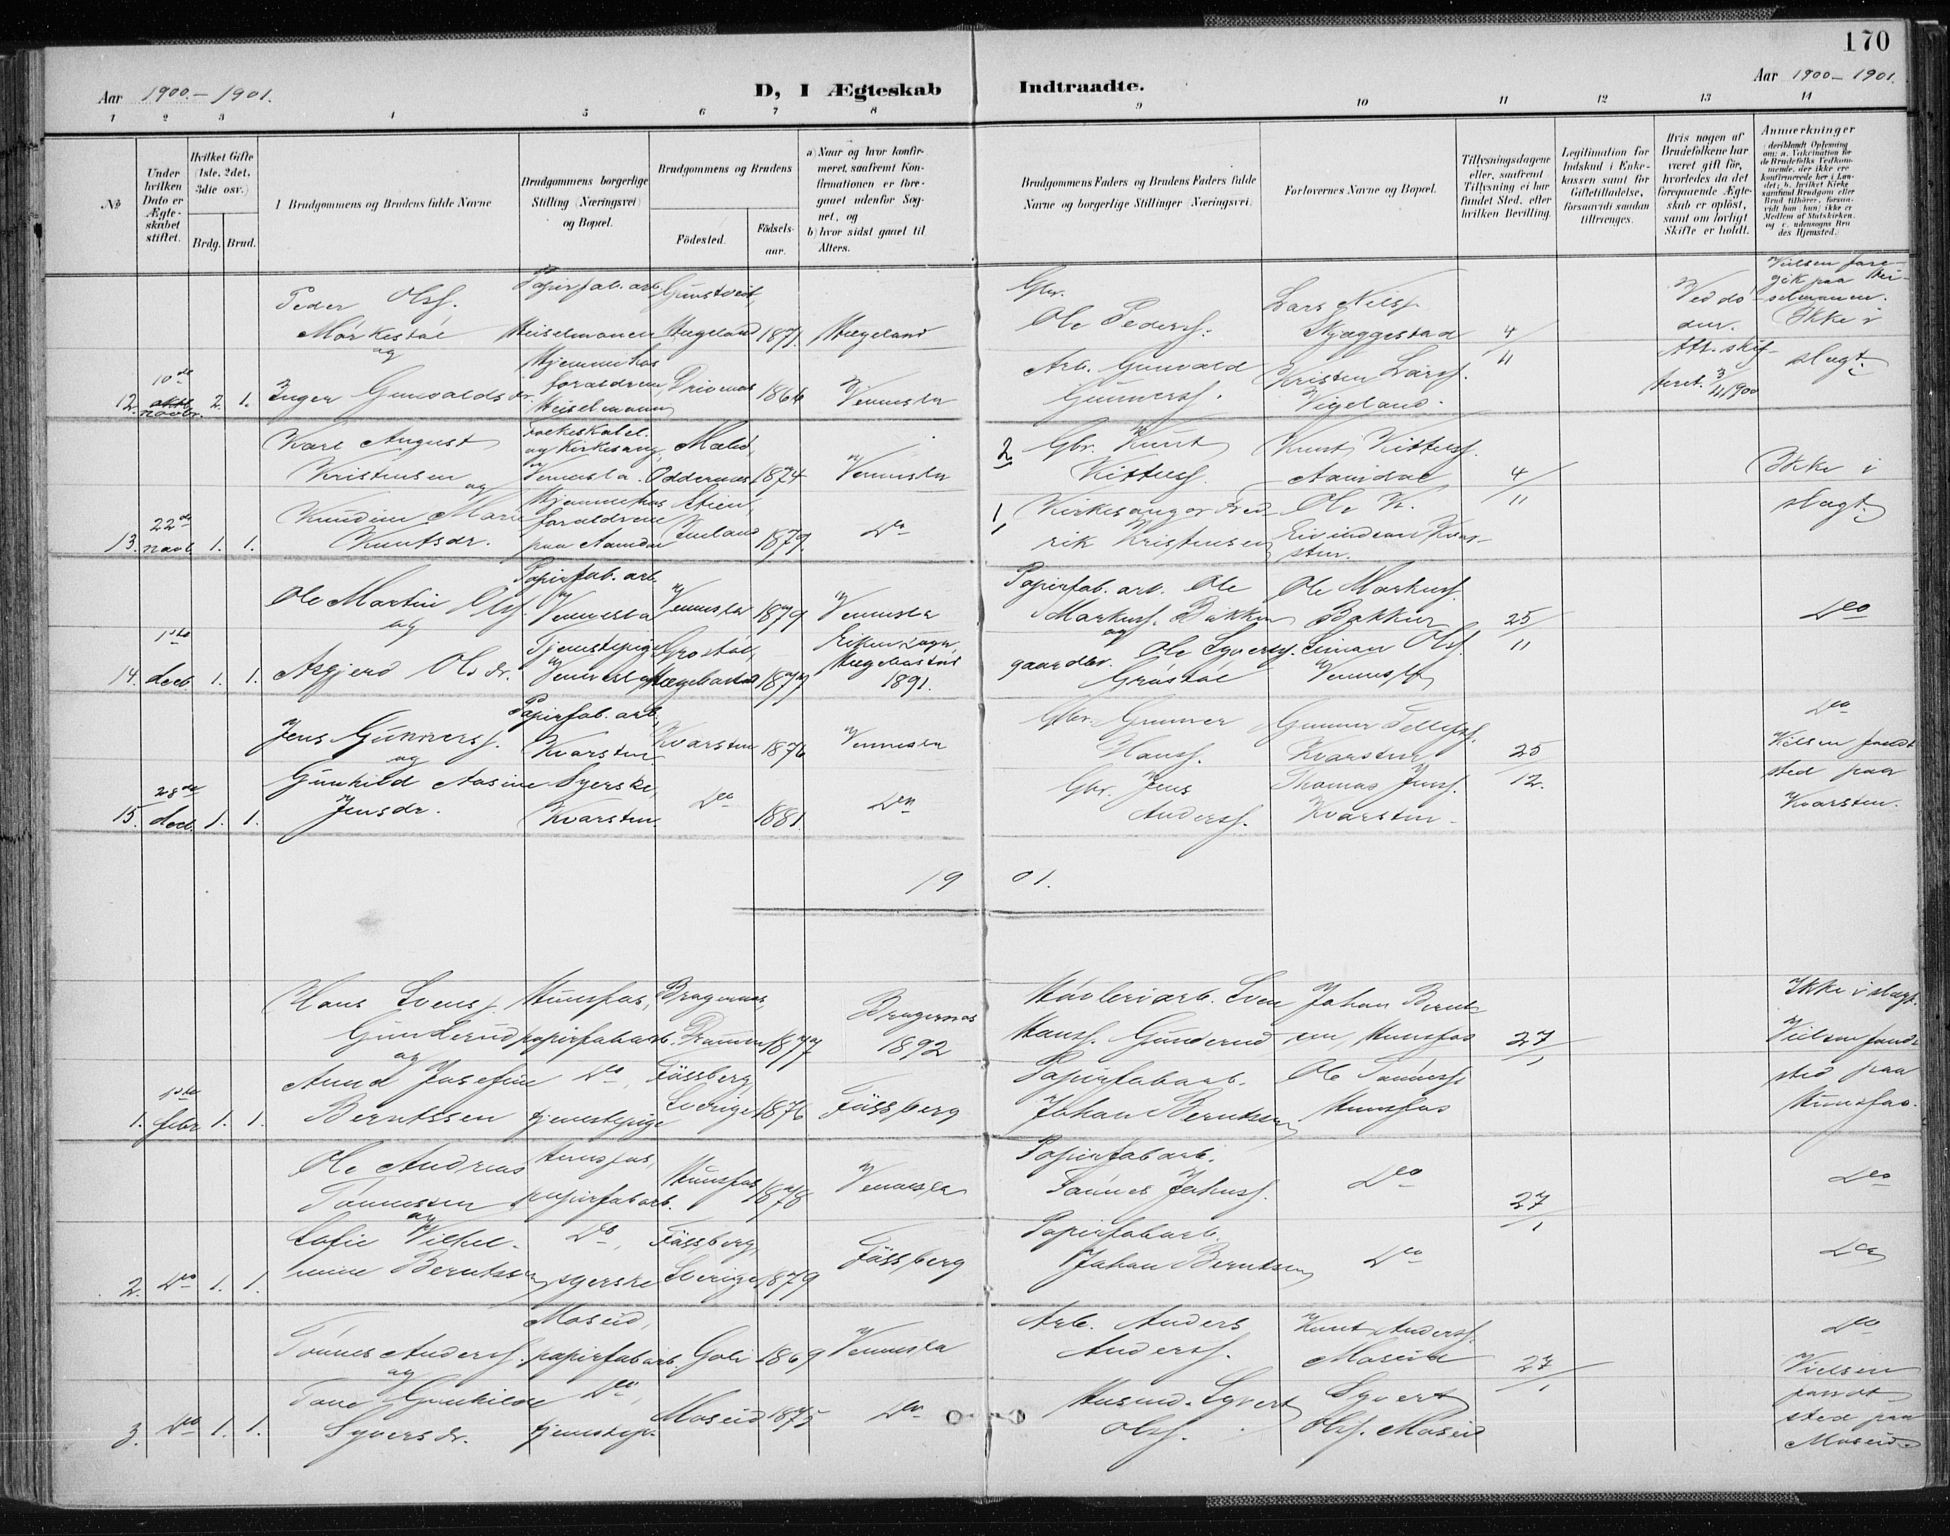 170
Aar 1900 - 1901.
D, I Ægteskab Indtraadte.
Aar 1900 - 1901.
1 2 3 4 5 6 7 8 9 10 11 12 13 14
No
Under hvilken Dato er Ægteskabet stiftet.
Hvilket Gifte (1ste, 2det, 3die osv.)
Brdg. Brud.
I Brudgommens og Brudens fulde Navne
Brudgommens borgerlige Stilling (Næringsvei) og Bopæl.
Brudgommens og Brudens
Fødested.
Fødselsaar.
a) Naar og hvor konfirmeret, saafremt Konfirmationen er foregaaet udenfor Sognet, og
b) hvor sidst gaaet til Alters.
Brudgommens Faders og Brudens Faders fulde Navne og borgerlige Stillinger (Næringsvei).
Forlovernes Navne og Bopæl.
Tillysningsdagene eller, saafremt Tillysning ei har fundet Sted, efter hvilken Bevilling.
Legitimation for Indskud i Enkekassen samt for Giftetilladelse, forsaavidt saadan tiltrænges.
Hvis nogen af Brudefolkene har været gift før, hvorledes da det foregaaende Ægteskab er opløst, samt om lovligt Skifte er holdt.
Anmærkninger
12. 10de novbr. 2. 1.
Peder Olsf.
Mørkestøl
og
Inger Gunvaldsdr.
Papirfab. arb.
Heiselmoen
Hjemme hos
forældrene
Hægeland 1871. Hægeland
1864 Vennesla
Gbr.
Ole Pedersf.
Arb. Gunvald
Gunnersf.
Lars Nilsf.
Skjæggestad
Kristen Larsf.
Vigeland.
4/11
Ved døden.
Att. skifteret. 3/11 1900
Ikke i
slægt.
13. 22de novb. 1. 1.
Karl August
Kristensen
og
Kundine Marie
Knutsdr.
og kirkesang.
Vennesla.
Hjemme hos
forældrene
paa Aamdal
Oddernes 1874 Vennesla
Stien,
Iveland 1879. Do
2 Gbr. Knut
Kittelsf.
1 Kirkesanger Fredrik Kristensen
Knut Kittelsf.
Aamdal
Ole K.
4/11
Ikke i
slægt.
14. 1ste decb. 1. 1.
Ole Martin Olsf.
og
Asgjerd Olsdr.
Papirfab. arb.
Vennesla
Tjenestepige
Vennesla
Vennesla 1879 Vennesla
Grøstøl,
Hægebostad 1877
Eiken sogn,
Hægebostad
1891.
Papirfab. arb. Ole
Markusf. Bakken
og
gaardbr. Ole Syversf.
Grøstøl
Ole Markusf.
Bakken
Simon Olsf.
Vennesla
25/11
Do
15. 28de decb. 1. 1.
Jens Gunnersf.
og
Gunhild Aasine
Jensdr.
Papirfab. arb.
Kvarsten
Syerske,
Kvarsten.
Kvarsten 1876 Vennesla
Do 1881. Do
Gbr. Gunner
Hansf.
Gbr. Jens
Andersf.
Gunner Tellefsf.
Kvarsten
Thomas Jensf.
Kvarsten.
25/12.
Do
Vielsen fandt
sted paa
Kvarsten.
1901.
1. 1ste febr. 1. 1.
Hans Svensf.
Gunderud
og
Anna Josefine
Berntssen
Hunsfos,
papirfabarb.
Do,
tjenestepige
Bragernes,
Drammen 1877
Fässberg
Sverige 1876
Bragernes
1892
Fässberg
Høvleriarb. Sven
Hansf. Gunderud
Papirfabarb.
Johan Berntsen
Johan Berntsen, Hunsfos
Ole Tønnesf.
Hunsfos
27/1
Ikke i slægt.
Vielsen fandt
sted paa
Hunsfos.
2. Do 1. 1.
Ole Andreas
Tønnessen
og
Sofie Vilhelmine Berntsen
Hunsfos,
papirfabarb.
Do,
syerske
Hunsfos 1878
Fässberg,
Sverige 1879
Vennesla
Fässberg
Papirfabarb.
Tønnes Johnsf.
Papirfabarb.
Johan Berntsen
Do
Do
27/1
Do
Do
3. Do 1. 1.
Tønnes Andersf.
og
Tone Gunhilde
Syversdr.
Moseid,
papirfabarb.
Do,
tjenestep.
Goli 1869
Moseid 1875
Vennesla
Do
Arb. Anders
Andersf.
Husmd. Syvert
Olsf.
Knut Andersf.
Moseid
Syvert
Olsf. Moseid
27/1
Do
Vielsen
fandt
sted paa
Moseid.